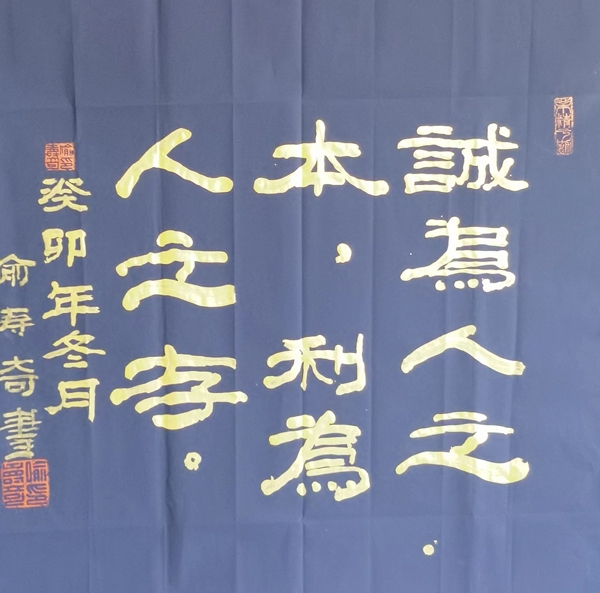 誠為人之
本，利為
人之存。
癸卯年冬月
俞寿奇書